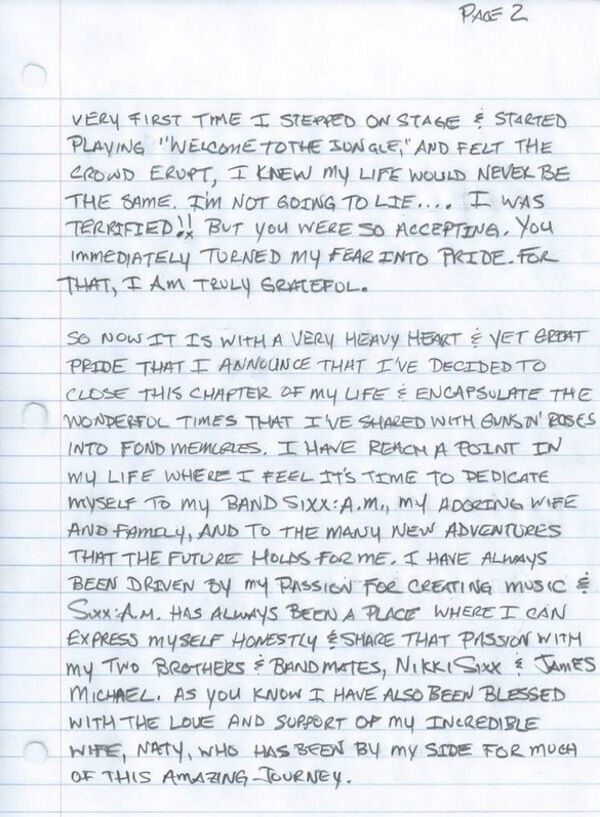 PAGE 2
VERY FIRST TIME I STEPPED ON STAGE & STARTED
PLAYING "WELCOME TO THE JUNGLE," AND FELT THE
CROWD ERUPT, I KNEW MY LIFE WOULD NEVER BE
THE SAME. I'M NOT GOING TO LIE.... I WAS
TERRIFIED!! BUT YOU WERE SO ACCEPTING. YOU
IMMEDIATELY TURNED MY FEAR INTO PRIDE. FOR
THAT, I AM TRULY GRATEFUL.
SO NOW IT IS WITH A VERY HEAVY HEART & YET GREAT
PRIDE THAT I ANNOUNCE THAT I'VE DECIDED TO
CLOSE THIS CHAPTER OF MY LIFE & ENCAPSULATE THE
WONDERFUL TIMES THAT I'VE SHARED WITH GUNS N' ROSES
INTO FOND MEMORIES. I HAVE REACH A POINT IN
MY LIFE WHERE I FEEL IT'S TIME TO DEDICATE
MYSELF TO MY BAND SIXX:A.M., MY ADORING WIFE
AND FAMILY, AND TO THE MANY NEW ADVENTURES
THAT THE FUTURE HOLDS FOR ME. I HAVE ALWAYS
BEEN DRIVEN BY MY PASSION FOR CREATING MUSIC &
SIXX:A.M. HAS ALWAYS BEEN A PLACE WHERE I CAN
EXPRESS MYSELF HONESTLY & SHARE THAT PASSION WITH
MY TWO BROTHERS & BANDMATES, NIKKI SIXX & JAMES
MICHAEL. AS YOU KNOW I HAVE ALSO BEEN BLESSED
WITH THE LOVE AND SUPPORT OF MY INCREDIBLE
WIFE, NATY, WHO HAS BEEN BY MY SIDE FOR MUCH
OF THIS AMAZING JOURNEY.